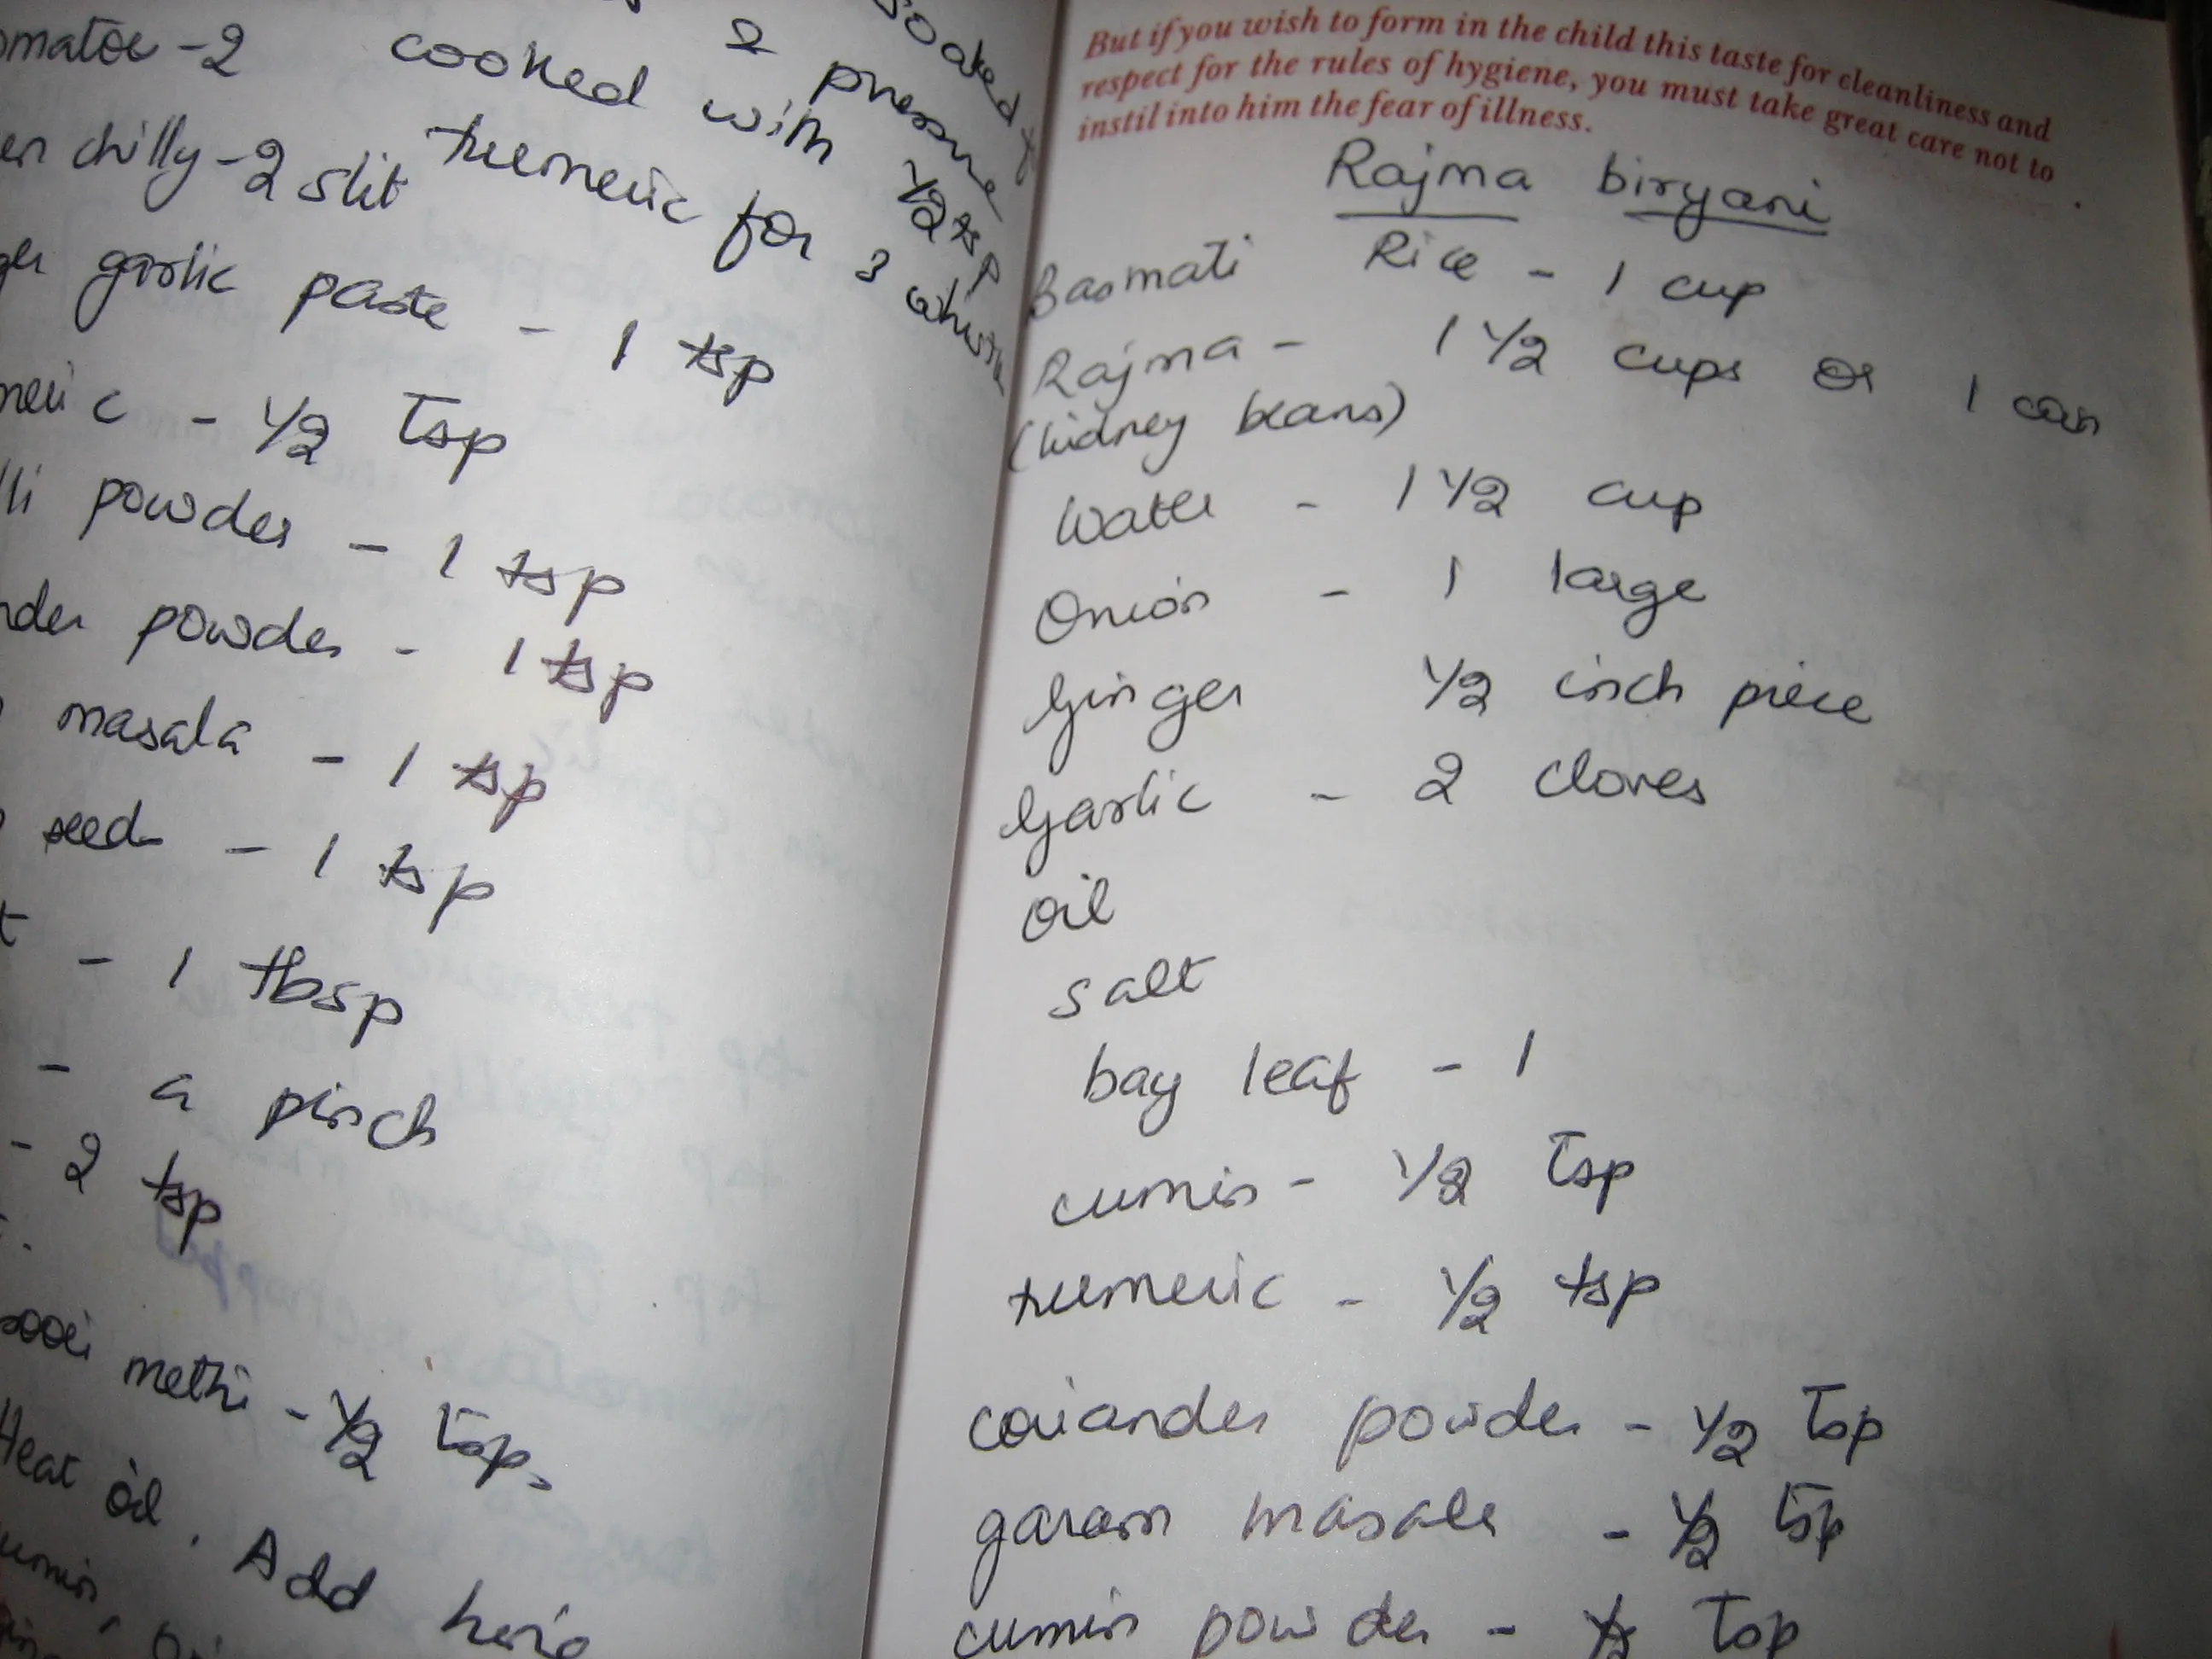 2 cooked with 1/2 tsp
& pressure
soaked
tumeric for 3
-2
chilly -2 slit
garlic paste - 1 tsp
- 1/2 Tsp
powder - 1 tsp
powder - 1 tsp
masala - 1 tsp
seed - 1 tsp
- 1 tbsp
- a pinch
- 2 tsp
methi - 1/2 Tsp.
Heat oil. Add
But if you wish to form in the child this taste for cleanliness and
respect for the rules of hygiene, you must take great care not to
instil into him the fear of illness.
Rajma biryani
Basmati Rice - 1 cup
Rajma - 1 1/2 cups or 1 can
(kidney beans)
Water - 1 1/2 cup
Onion - 1 large
Ginger 1/2 inch piece
Garlic - 2 cloves
oil
salt
bay leaf - 1
cumin - 1/2 Tsp
tumeric - 1/2 tsp
coriander powder - 1/2 Tsp
garam masala - 1/2 Tsp
cumin powder - 1/2 Tsp